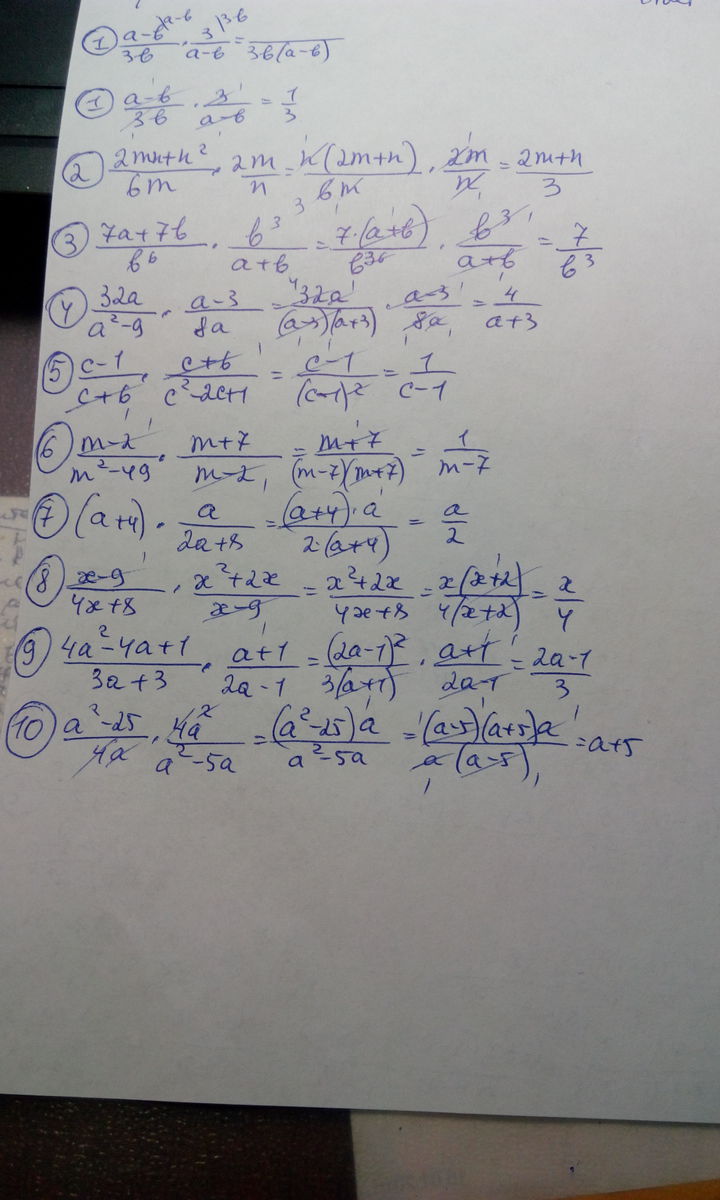 ① (a-b)/(3b) \a-b · 3/(a-b) \3b = /(3b(a-b))
① (a-b)/(3b) · 3/(a-b) = 1/3
② (2mn+n²)/(6m) · 2m/n = n(2m+n)/(6m) · 2m/n = (2m+n)/3
③ (7a+7b)/b⁶ · b³/(a+b) = 7·(a+b)/b³⁶ · b³/(a+b) = 7/b³
④ 32a/(a²-9) · (a-3)/(8a) = 32a/((a-3)(a+3)) · (a-3)/(8a) = 4/(a+3)
⑤ (c-1)/(c+b) · (c+b)/(c²-2c+1) = (c-1)/(c-1)² = 1/(c-1)
⑥ (m-2)/(m²-49) · (m+7)/(m-2) = (m+7)/((m-7)(m+7)) = 1/(m-7)
⑦ (a+4) · a/(2a+8) = (a+4)·a/(2·(a+4)) = a/2
⑧ (x-9)/(4x+8) · (x²+2x)/(x-9) = (x²+2x)/(4x+8) = x(x+2)/(4(x+2)) = x/4
⑨ (4a²-4a+1)/(3a+3) · (a+1)/(2a-1) = (2a-1)²/(3(a+1)) · (a+1)/(2a-1) = (2a-1)/3
⑩ (a²-25)/(4a) · 4a²/(a²-5a) = (a²-25)a/(a²-5a) = (a-5)(a+5)a/(a(a-5)) = a+5